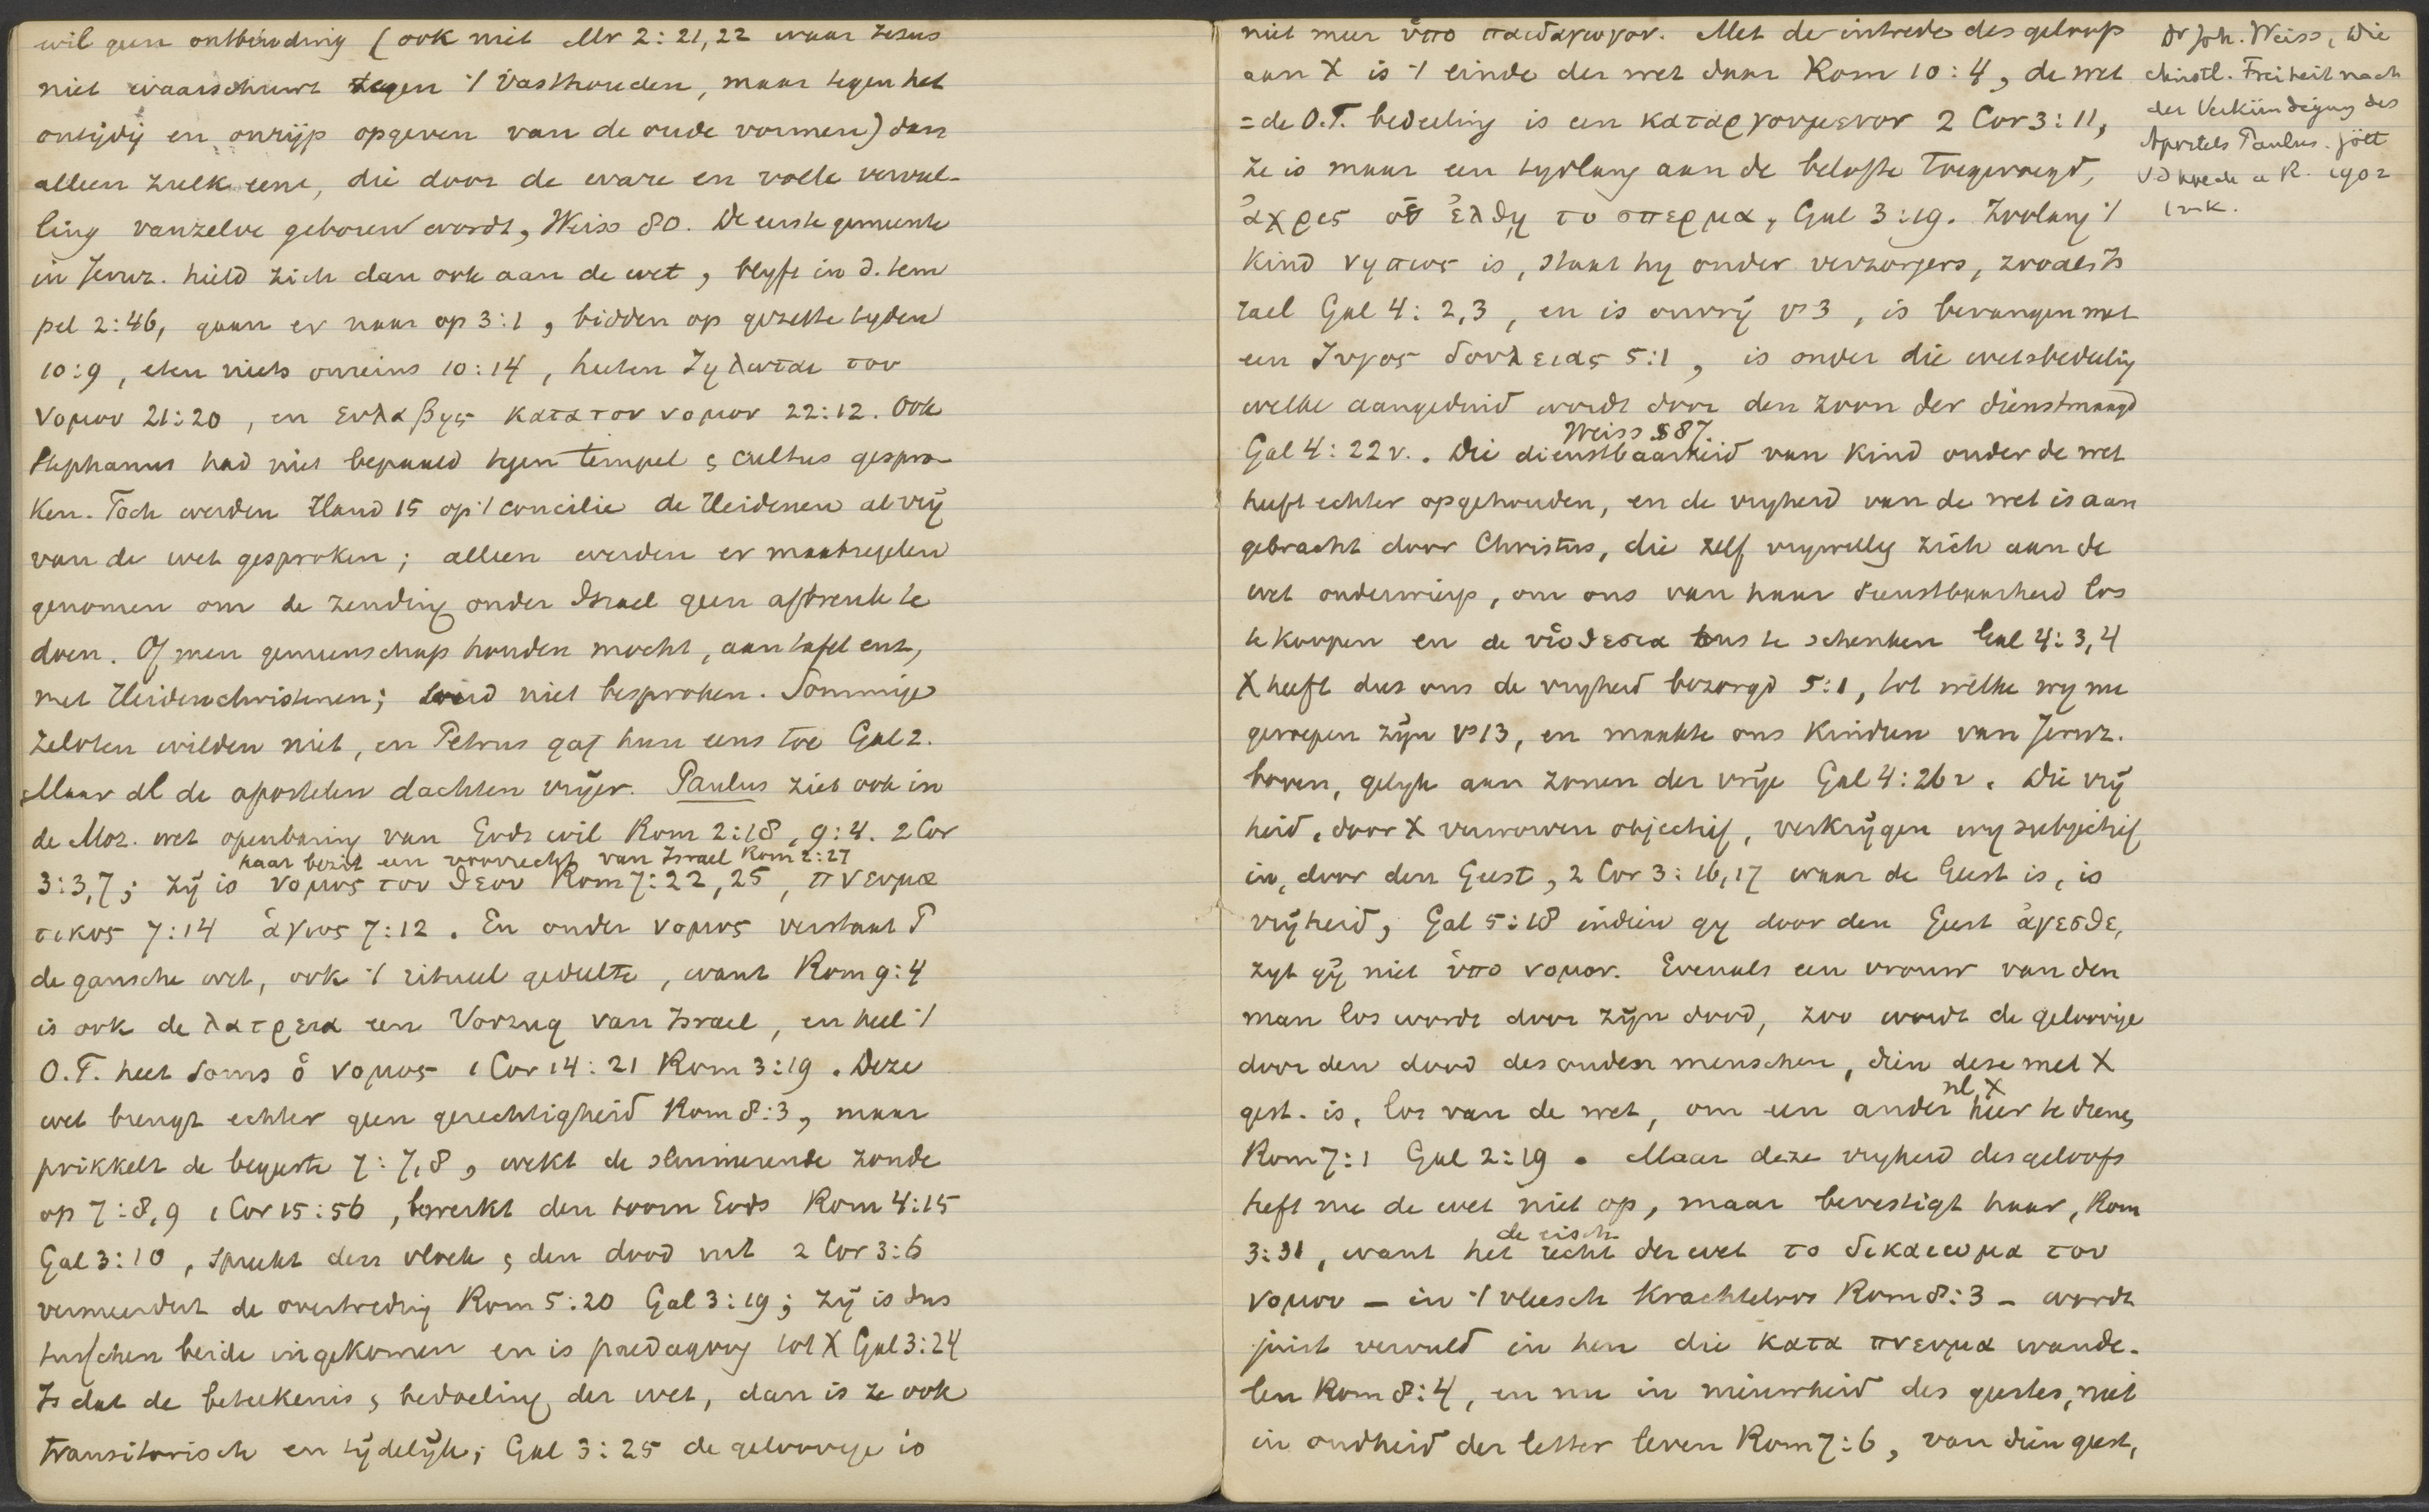 wil geen ontbinding (ook niet Mr 2:21,22 waar Jesus
niet waarschuwt tegen 't vasthouden, maar tegen het
ontijdig en onrijp opgeven van de oude vormen) dan
alleen zulk eene, die door de ware en volle vervul-
ling vanzelve geboren wordt, Weiss 80. De eerste gemeente
in Jeruz. hield zich dan ook aan de wet, blyft in d. tem
pel 2:46, gaan er naar op 3:1, bidden op gezette tyden
10:9, eten niets onreins 10:14, heeten ζηλωται του
νομου 21:20, en ευλαβης κατα τον νομον 22:12. Ook
Stephanus had niet bepaald tegen tempel & cultus gespro-
ken. Toch werden Hand 15 op 't concilie de Heidenen al vrij
van de wet gesproken; alleen werden er maatregelen
genomen om de zending onder Israel geen afbreuk te
doen. Of men gemeenschap houden mocht, aan tafel enz,
met Heidenchristenen; werd niet besproken. Sommige
Zeloten wilden niet, en Petrus gaf hun eens toe Gal 2.
Maar al de apostelen dachten vrijer. Paulus ziet ook in
de Moz. wet openbaring van Gods wil Rom 2:18, 9:4. 2 Cor
haar bezit een voorrecht van Israel Rom 2:27
3:3,7; zij is νομος του θεου Rom 7:22, 25, πνευμα
τικος 7:14 ἁγιος 7:12. En onder νομος verstaat P
de gansche wet, ook 't ritueel gedeelte, want Rom 9:4
is ook de λατρεια een Vorzug van Israel, en heel 't
O.T. heet soms ὁ νομος 1 Cor 14:21 Rom 3:19. Deze
wet brengt echter geen gerechtigheid Rom 8:3, maar
prikkelt de begeerte 7:7,8, wekt de sluimerende zonde
op 7:8,9 1 Cor 15:56, bewerkt den toorn Gods Rom 4:15
Gal 3:10, spreekt den vloek & den dood uit 2 Cor 3:6
vermeerdert de overtreding Rom 5:20 Gal 3:19; zij is dus
tusschen beide ingekomen en is paedagoog tot X Gal 3:24
Is dat de beteekenis & bedoeling der wet, dan is ze ook
transitorisch en tijdelijk; Gal 3:25 de geloovige is
niet meer ὑπο παιδαγωγον. Met de intrede des geloofs
aan X is 't einde der wet daar Rom 10:4, de wet
= de O.T. bedeeling is een καταργουμενον 2 Cor 3:11,
ze is maar een tydlang aan de belofte toegevoegd,
ἀχρις οὑ ἐλθῃ το σπερμα, Gal 3:19. Zoolang 't
kind νηπιος is, staat hy onder verzorgers, zooals Is
rael Gal 4:2,3, en is onvrij vs 3, is bevangen met
een ζυγος δουλειας 5:1, is onder die wetsbedeling
welke aangeduid wordt door den zoon der dienstmaagd
Weiss S 87
Gal 4:22v. Die dienstbaarheid van kind onder de wet
heeft echter opgehouden, en de vryheid van de wet is aan
gebracht door Christus, die zelf vrywillig zich aan de
wet onderwierp, om ons van haar dienstbaarheid los
te koopen en de υἱοθεσια ons te schenken Gal 4:3,4
X heeft dus ons de vryheid bezorgd 5:1, tot welke wy nu
geroepen zijn vs 13, en maakte ons kinderen van Jeruz.
boven, gelyk aan zonen der vrije Gal 4:26v. Die vrij
heid, door X verworven objectief, verkrijgen wy subjectief
in, door den Geest, 2 Cor 3:16,17 waar de Geest is, is
vrijheid, Gal 5:18 indien gy door den Geest ἀγεσθε,
zyt gij niet ὑπο νομον. Evenals een vrouw van den
man los wordt door zijn dood, zoo wordt de geloovige
door den dood des ouden menschen, dien deze met X
nl X
gest. is, los van de wet, om een ander heer te dienen,
Rom 7:1 Gal 2:19. Maar deze vryheid des geloofs
heft nu de wet niet op, maar bevestigt haar, Rom
de eisch
3:31, want het recht der wet το δικαιωμα του
νομου – in 't vleesch krachteloos Rom 8:3 – wordt
juist vervuld in hen die κατα πνευμα wande-
len Rom 8:4, en nu in nieuwheid des geestes, niet
in oudheid der letter leven Rom 7:6, van dien geest,
Dr Joh. Weiss, Die
christl. Freiheit nach
der Verkündigung des
Apostels Paulus. Gött
Vdhoeck u R. 1902